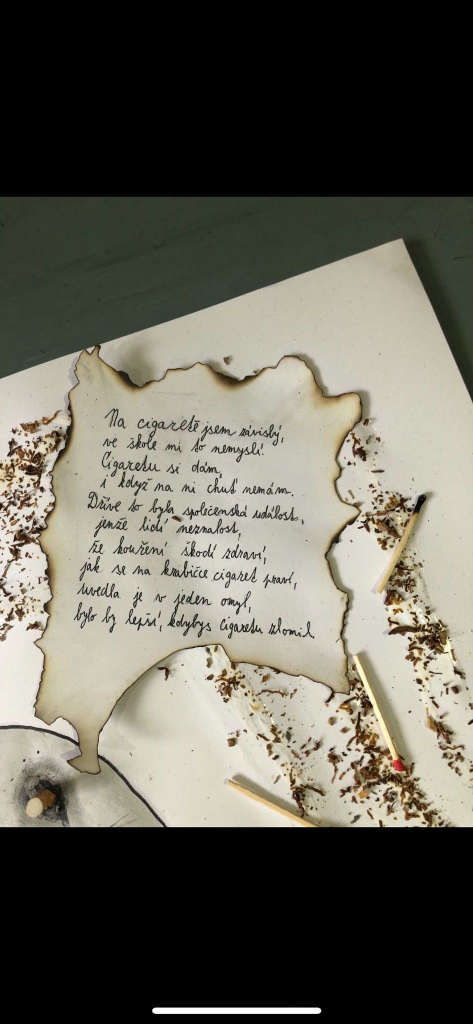 Na cigaretě jsem závislý,
ve škole mi to nemyslí.
Cigaretu si dám,
i když na ni chuť nemám.
Dříve to byla společenská událost,
jenže lidí neznalost,
že kouření škodí zdraví,
jak se na krabičce cigaret praví,
uvedla je v jeden omyl,
bylo by lepší, kdybys cigaretu zlomil